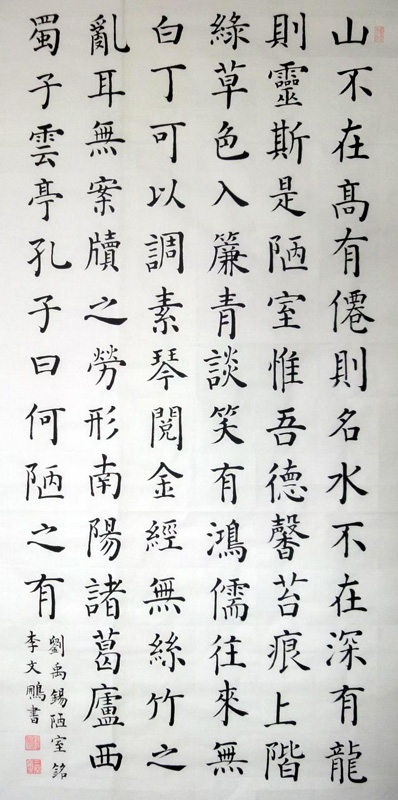 山不在高有僊則名水不在深有龍
則靈斯是陋室惟吾德馨苔痕上階
綠草色入簾青談笑有鴻儒往來無
白丁可以調素琴閱金經無絲竹之
亂耳無案牘之勞形南陽諸葛廬西
蜀子雲亭孔子曰何陋之有
劉禹錫陋室銘
李文鵬書